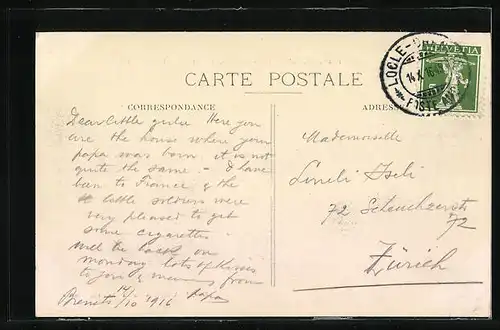 CARTE POSTALE
CORRESPONDANCE
ADRESSE
HELVETIA
LOCLE
14.X.16
Dear little girlie Here you
are the house where your
papa was born it is not
quite the same - I have
been to France & the
little soldiers were
very pleased to get
some cigarettes.
Will be back on
monday lots of Kisses
to you & mummy from
Papa
Brenets 14/10 1916
Mademoiselle
Loneli Iseli
72 Scheuchzerstr
72
Zürich